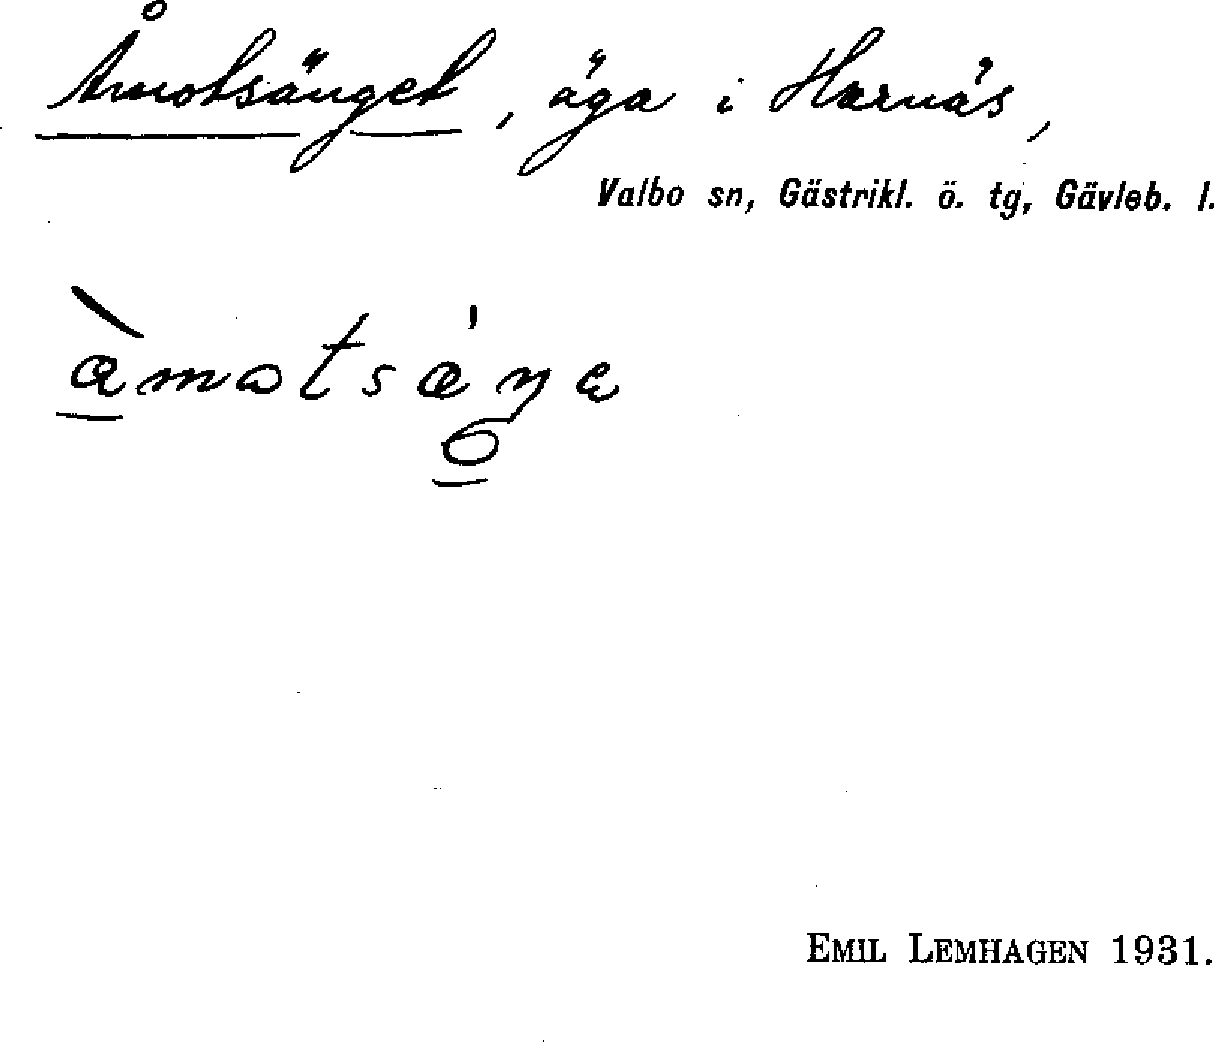 Åmotsänget, äga i Harnäs,
Valbo sn, Gästrikl. ö. tg, Gävleb. l.
EMIL LEMHAGEN 1931.